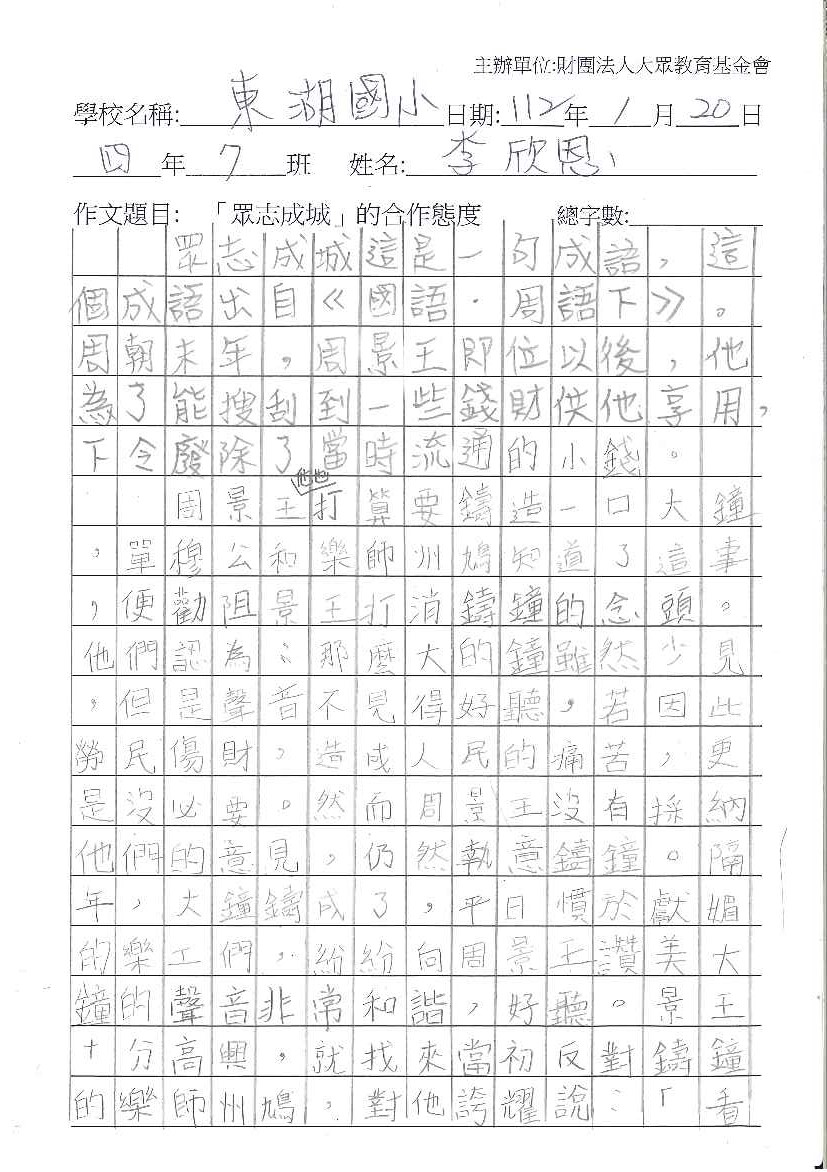 主辦單位:財團法人大眾教育基金會
學校名稱: 東湖國小 日期: 112 年 1 月 20 日
四 年 7 班 姓名: 李欣恩
作文題目: 「眾志成城」的合作態度 總字數:
眾志成城這是一句成語,這
個成語出自《國語·周語下》。
周朝末年,周景王即位以後,他
為了能搜刮到一些錢財供他享用,
下令廢除了當時流通的小錢。
他也
周景王打算要鑄造一口大鐘
,單穆公和樂師州鳩知道了這事
,便勸阻景王打消鑄鐘的念頭。
他們認為:那麼大的鐘雖然少見
,但是聲音不見得好聽,若因此
勞民傷財,造成人民的痛苦,更
是沒必要。然而周景王沒有採納
他們的意見,仍然執意鑄鐘。隔
年,大鐘鑄成了,平日慣於獻媚
的樂工們,紛紛向周景王讚美大
鐘的聲音非常和諧,好聽。景王
十分高興,就找來當初反對鑄鐘
的樂師州鳩,對他誇耀說:「看